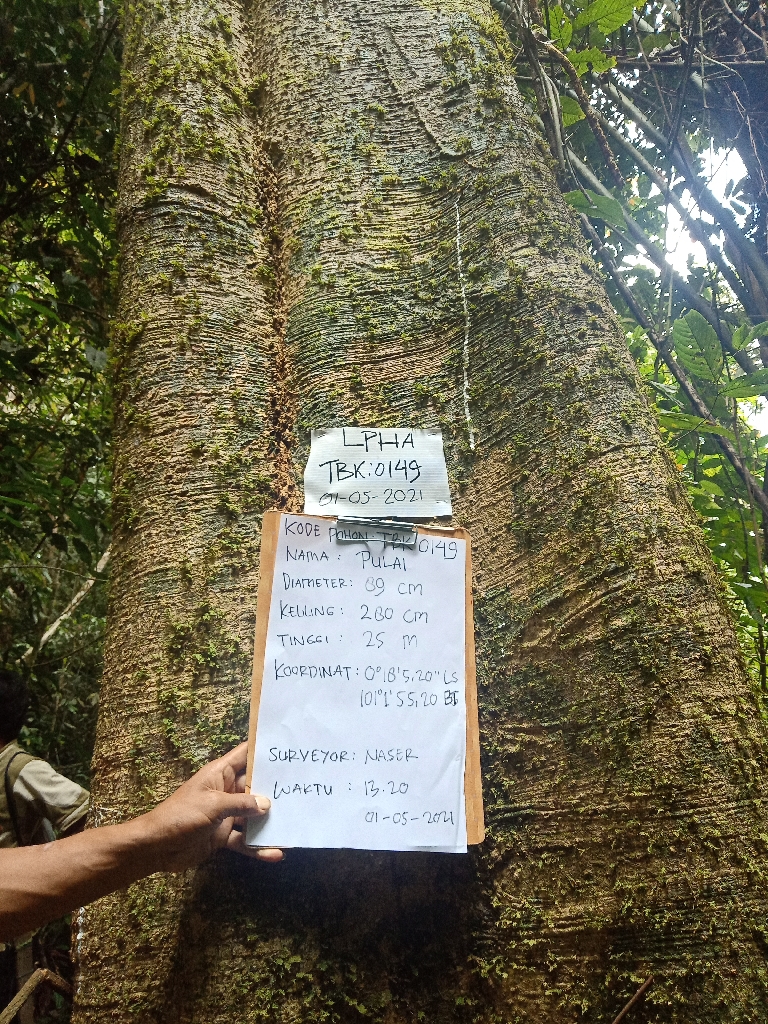 LPHA
TBK:0149
01-05-2021
KODE POHON: TBK 0149
NAMA: PULAI
DIAMETER: 89 cm
KELILING: 280 cm
TINGGI: 25 m
KOORDINAT: 0°18'5,20" LS
101°1'55,20 BT
SURVEYOR: NASER
WAKTU: 13.20
01-05-2021